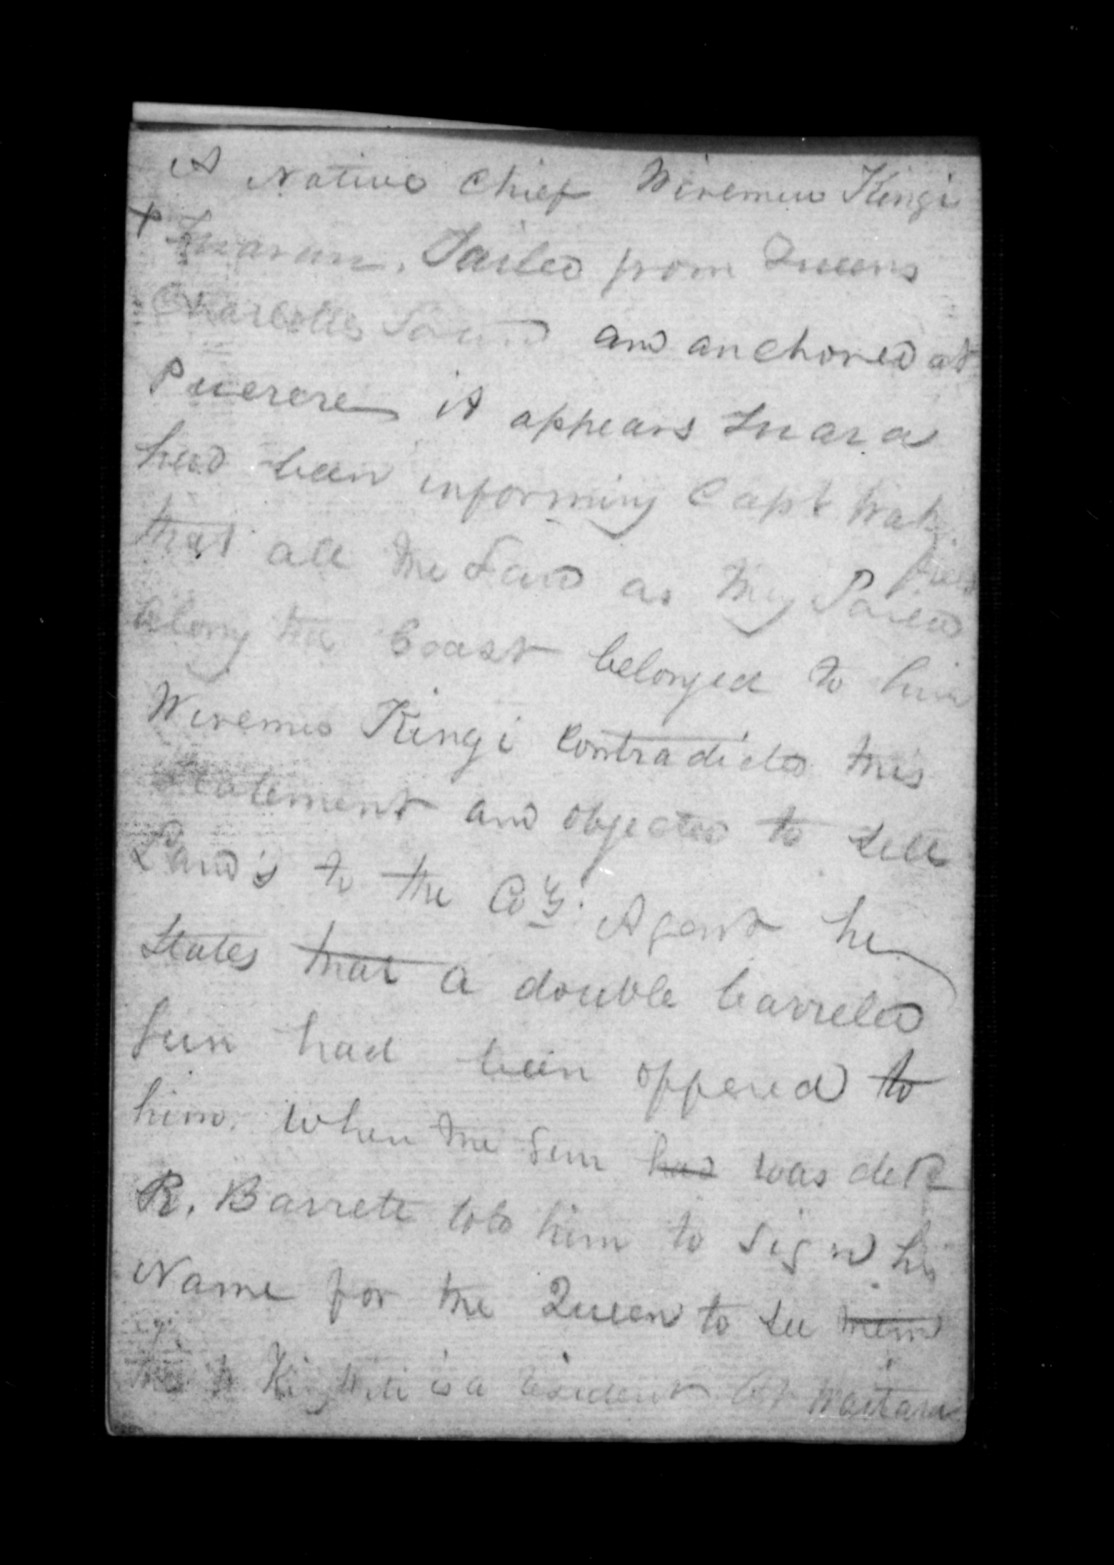 A Native Chief Wiremu Kingi
+ Sailed from Queens
Charlotte Sound and anchored at
Puerere it appears Tuara
had been informing Capt Wake
field
that all the Land as they Sailed
along the Coast belonged to him
Wiremu Kingi Contradicted this
Statement and objected to Sell
Land's to the Coy. Agent he
States that a double barreled
Gun had been offered to
him. When the Gun had was deld
R. Barrett told him to Sign his
Name for the Queen to See them
is a resident at Waitara